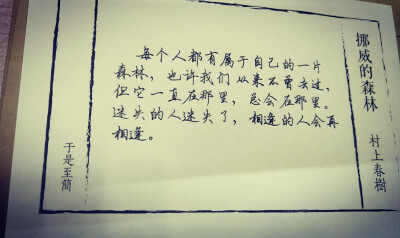 挪威的森林
村上春樹
每个人都有属于自己的一片
森林，也许我们从来不曾去过，
但它一直在那里，总会在那里。
迷失的人迷失了，相逢的人会再
相逢。
于是至簡